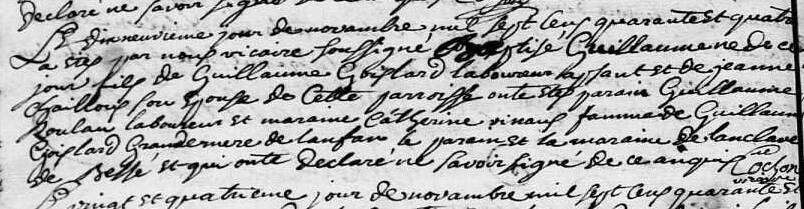 declaré ne savoir signé de
Le dix neuvieme jour de novembre mil sept cens quarante et quatre
a etes par nous vicaire soussigné baptisé Guillaume né de ce
jour fils de Guillaume Goislard laboureur absant et de jeanne
Caillou son Epouse de Cette parroisse onte etes parain Guillaume
Roulau laboureur et maraine Catherine vinaus famme de Guillaume
Goislard Grandemere de lanfan la parain et la maraine de lanclave
de Bessé et qui onte declaré ne savoir signé de ce anquis Cochon
vicaire
Le vingt et quatrieme jour de novembre mil sept cens quarante et